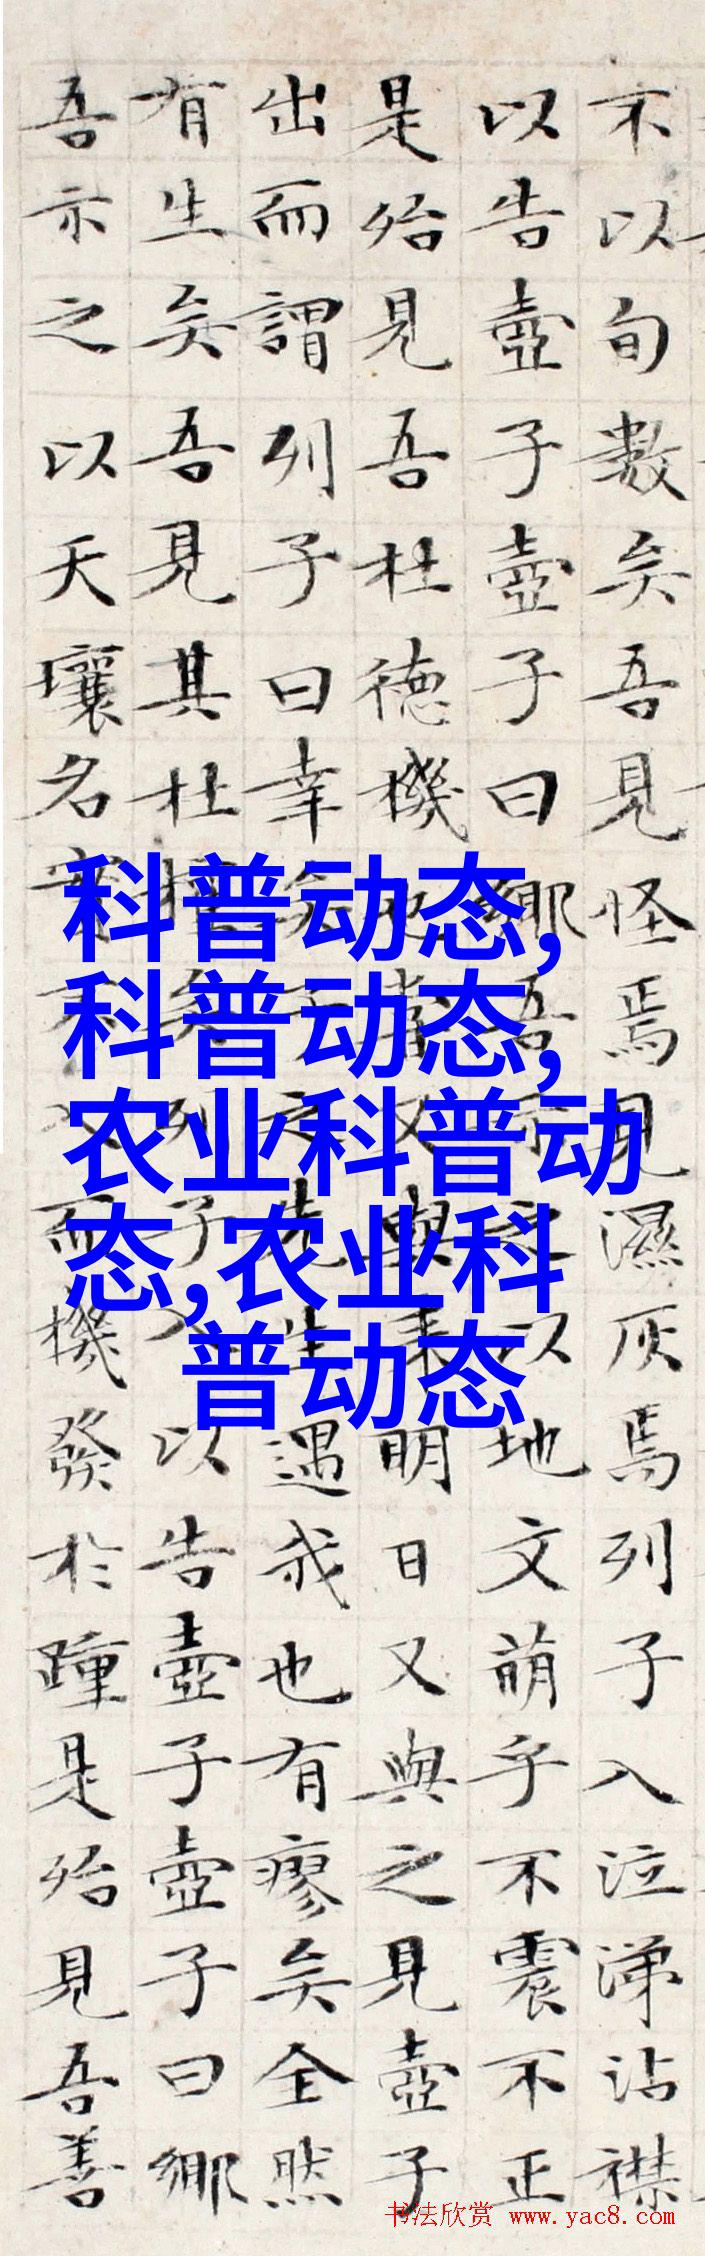 不以旬數矣吾見怪焉見濕灰焉列子入泣涕沾襟
以告壺子壺子曰鄉吾示之以地文萌乎不震不正
是殆見吾杜德機也嘗又與來明日又與之見壺子
出而謂列子曰幸矣子之先生遇我也有瘳矣全然
有生矣吾見其杜權矣列子入以告壺子壺子曰鄉
吾示之以天壤名實不入而機發於踵是殆見吾善
科普动态,
科普动态,
农业科普动
态,农业科
普动态
书法欣赏 www.yac8.com